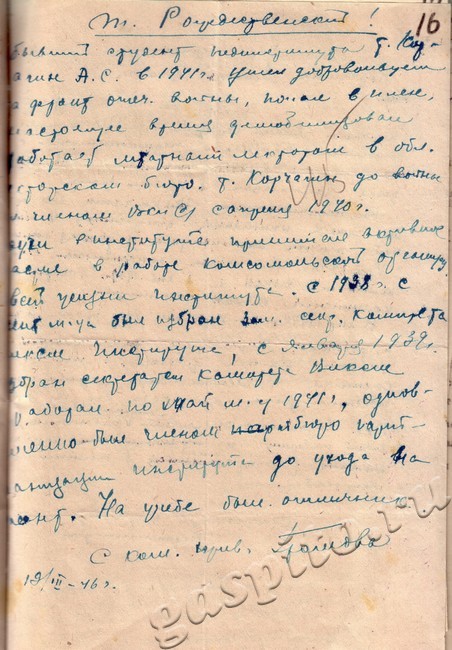 16
т. Рождественский!
бывший студент пединститута т. Кор-
чагин А.С. в 1941 г. ушел добровольцем
на фронт отеч. войны, попал в плен,
настоящее время демобилизован
работает штатным лектором в обл.
лекторском бюро. т. Корчагин до войны
членом ВКП(б) с апреля 1940 г.
институте принимал активное
участие в работе комсомольской организ.
института. с 1938 г. с
м-ца был избран зам. секр. комитета
института, с января 1939 г.
избран секретарем комитета ВЛКСМ
работал по май м-ц 1941 г., однов-
ременно был членом партбюро парт-
организации института до ухода на
фронт. На учебе был отличник.
С ком. прив.
12/III-46 г.
gaspiio.ru